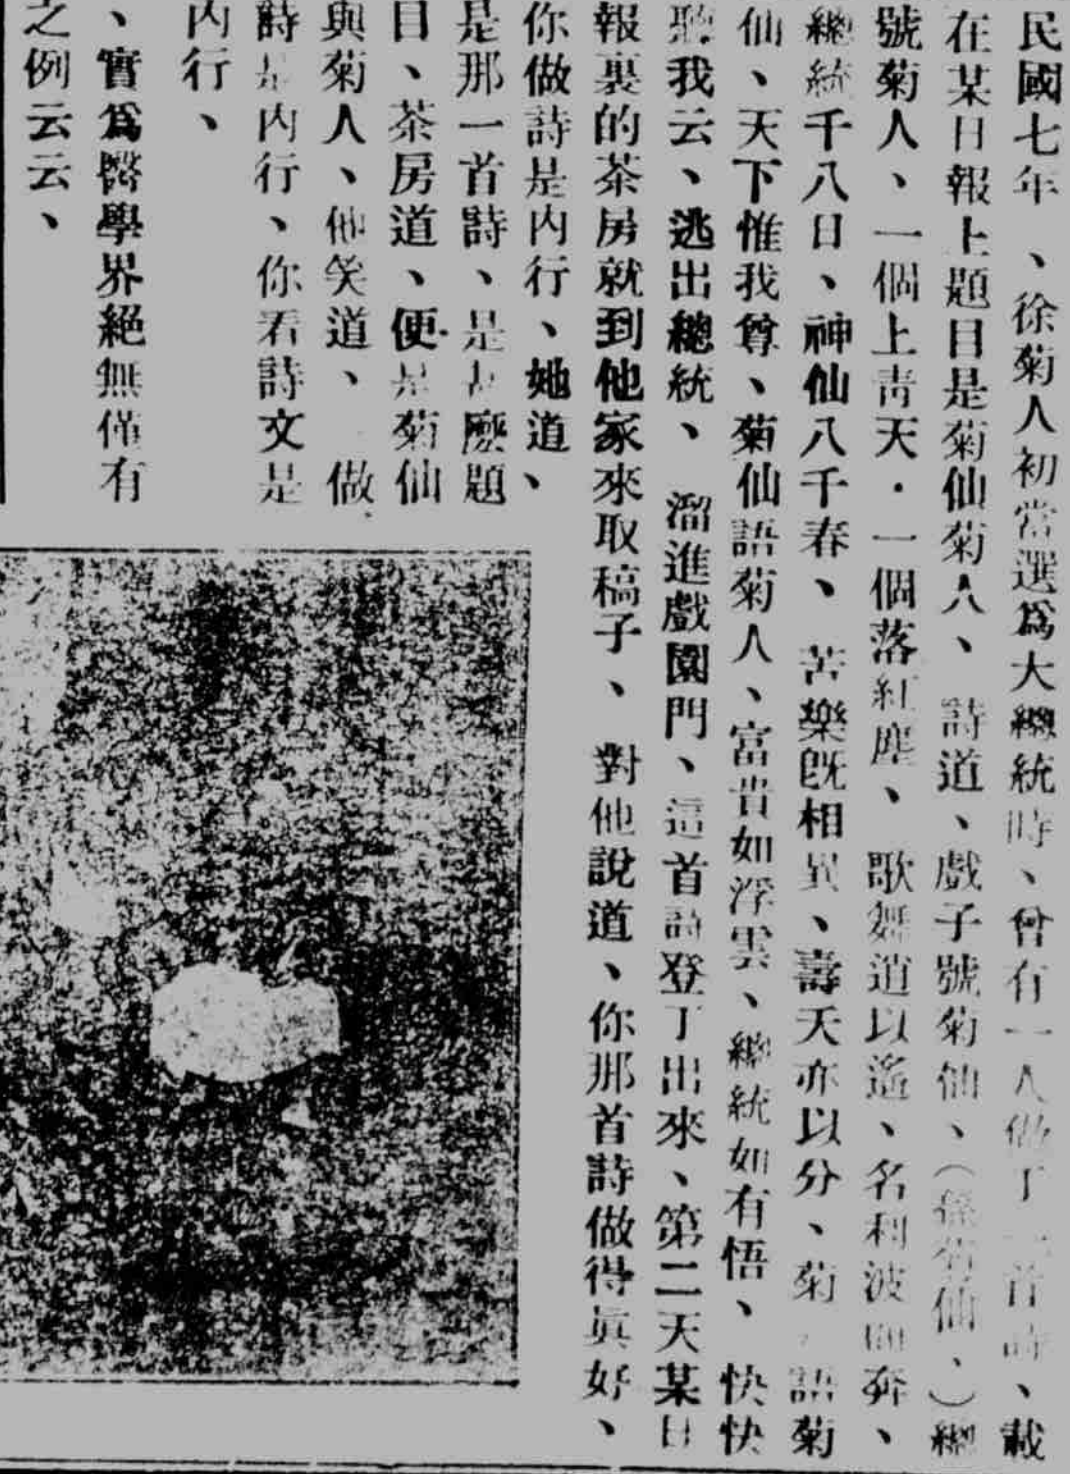 民國七年、徐菊人初當選爲大總統時、曾有一人做了一首詩、載
在某日報上題目是菊仙菊人、詩道、戲子號菊仙、（孫菊仙、）總
號菊人、一個上靑天・一個落紅塵、歌舞逍以遙、名利波而奔、
總統千八日、神仙八千春、苦樂旣相異、壽夭亦以分、菊語菊
仙、天下惟我尊、菊仙語菊人、富貴如浮雲、總統如有悟、快快
聽我云、逃出總統、溜進戲園門、這首詩登了出來、第二天某日
報裏的茶房就到他家來取稿子、對他說道、你那首詩做得眞好、
你做詩是內行、她道、
是那一首詩、是甚麼題
目、茶房道、便是菊仙
與菊人、他笑道、做
詩是內行、你看詩文是
內行、
、實爲醫學界絕無僅有
之例云云、